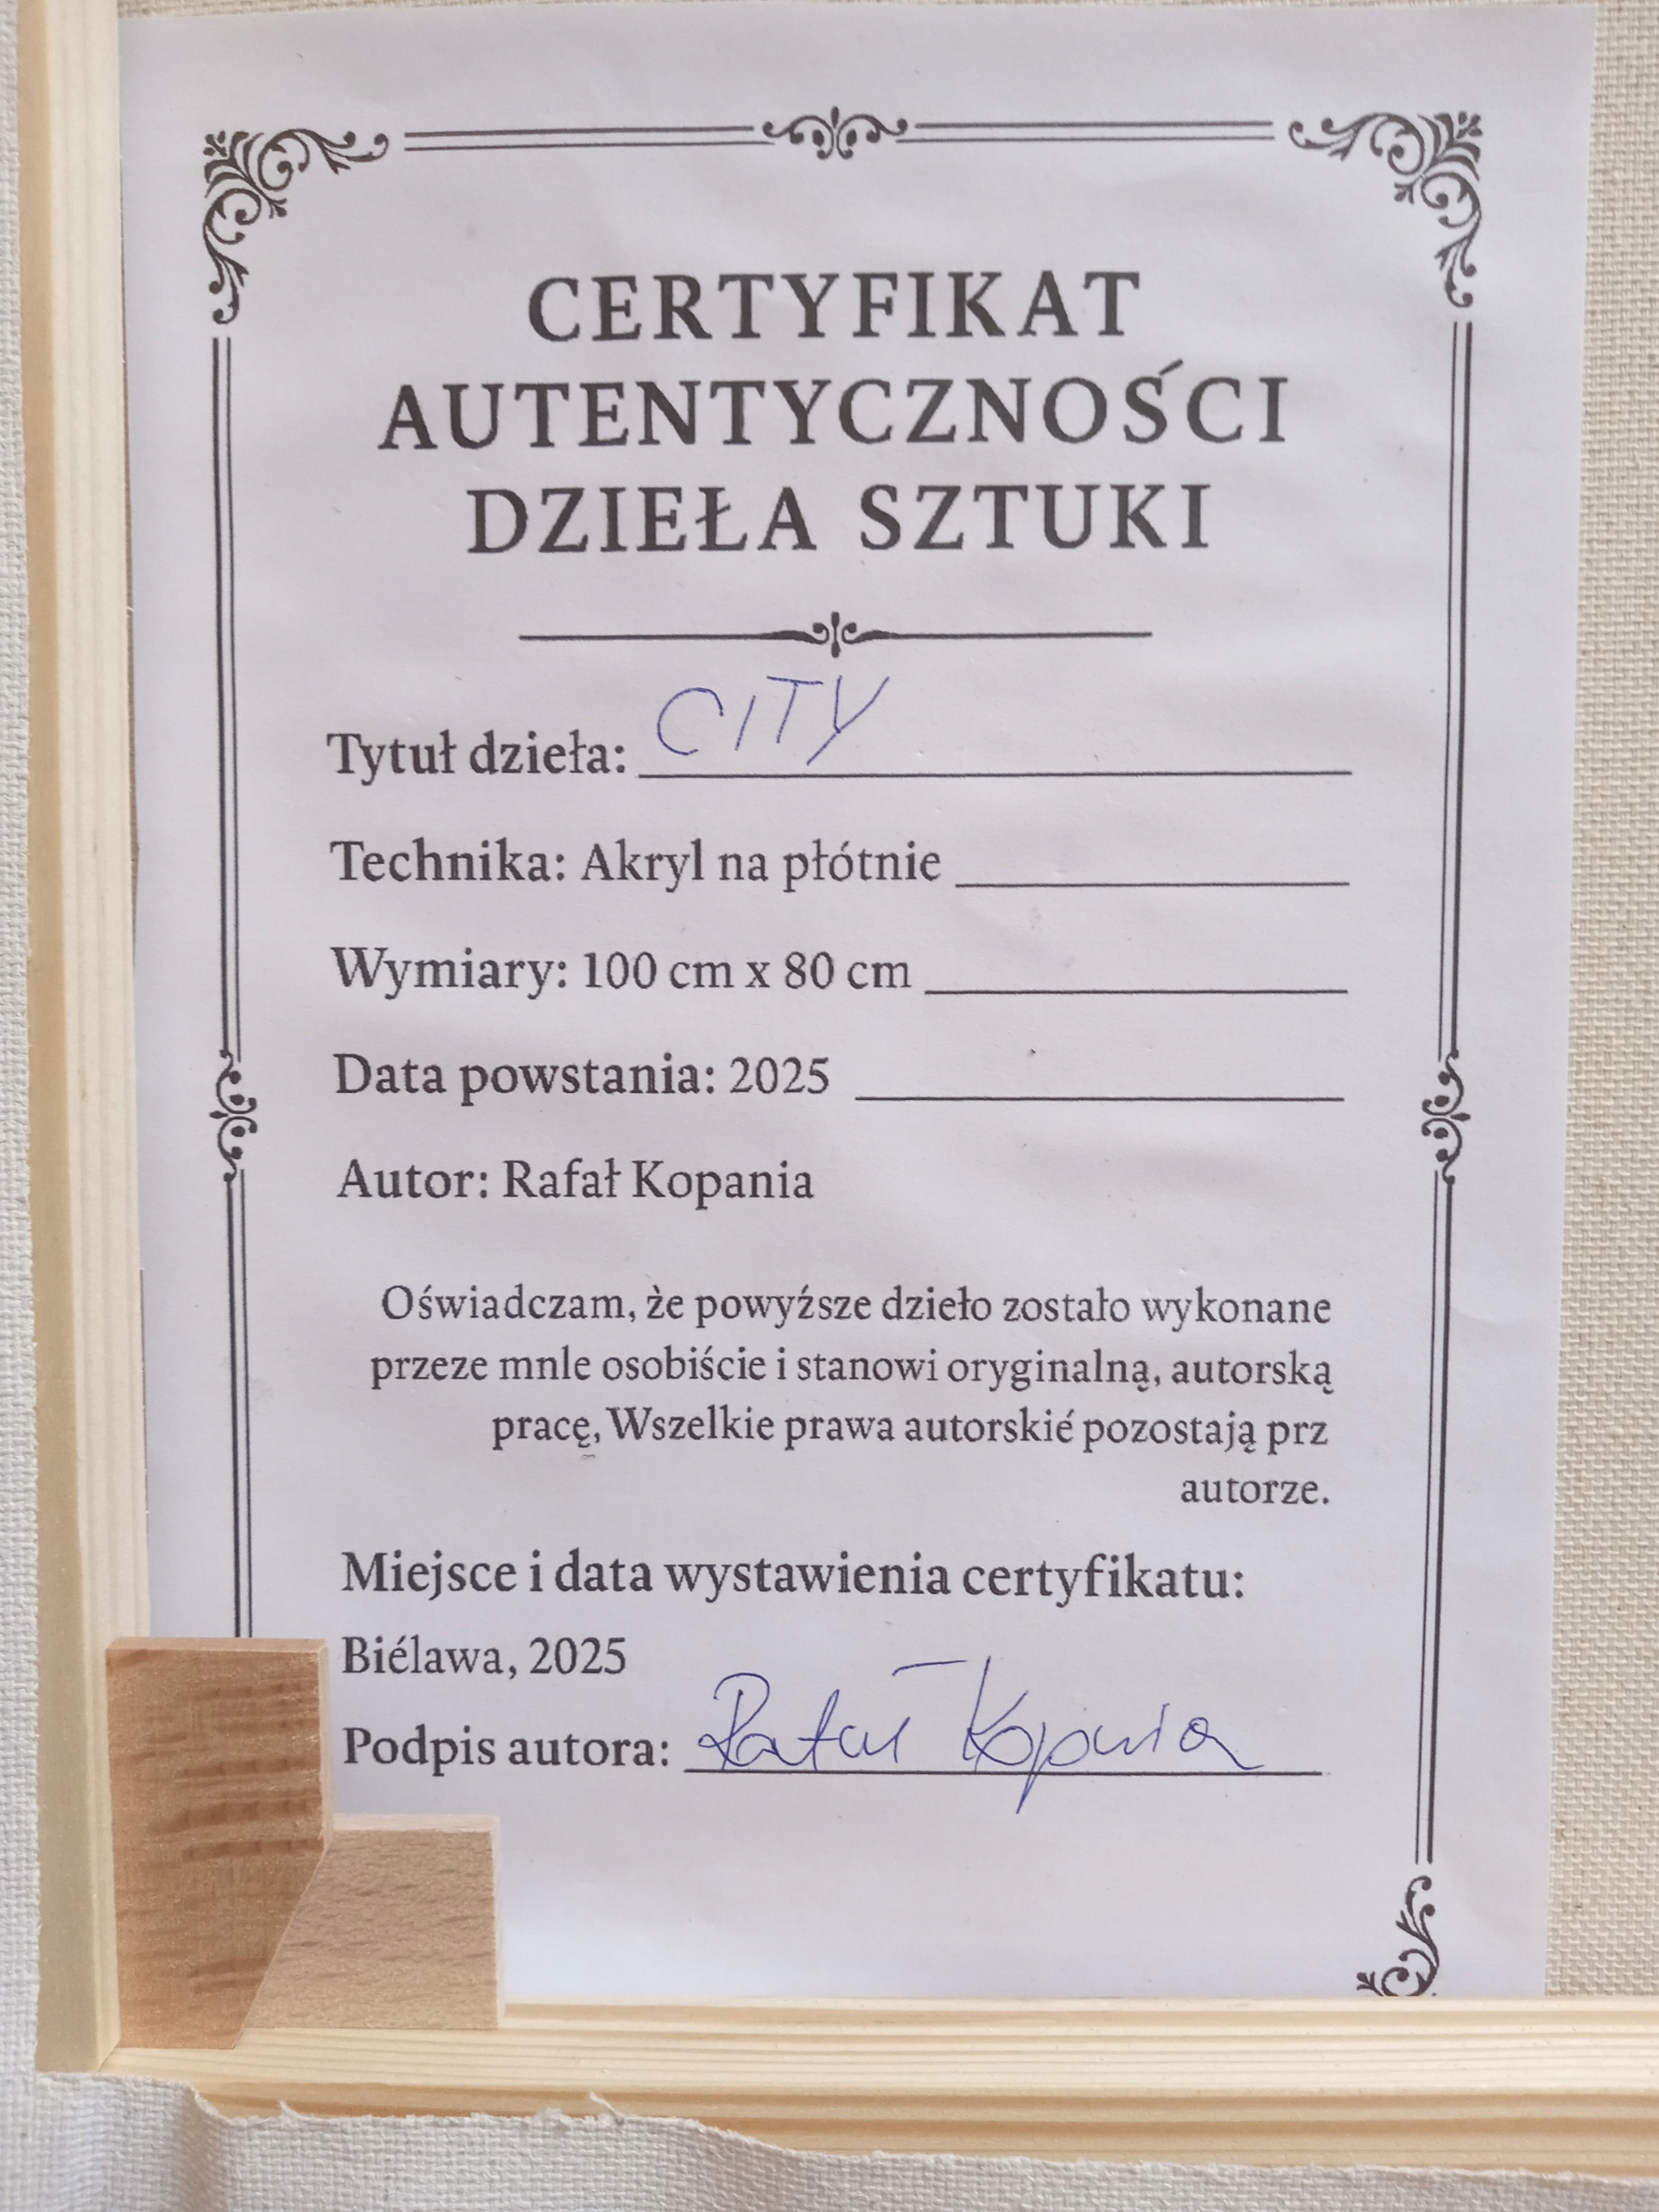 CERTYFIKAT
AUTENTYCZNOŚCI
DZIEŁA SZTUKI
Tytuł dzieła: CITY
Technika: Akryl na płótnie
Wymiary: 100 cm x 80 cm
Data powstania: 2025
Autor: Rafał Kopania
Oświadczam, że powyźsze dzieło zostało wykonane
przeze mnle osobiście i stanowi oryginalną, autorską
pracę, Wszelkie prawa autorskié pozostają prz
autorze.
Miejsce i data wystawienia certyfikatu:
Biélawa, 2025
Podpis autora: Rafał Kopania